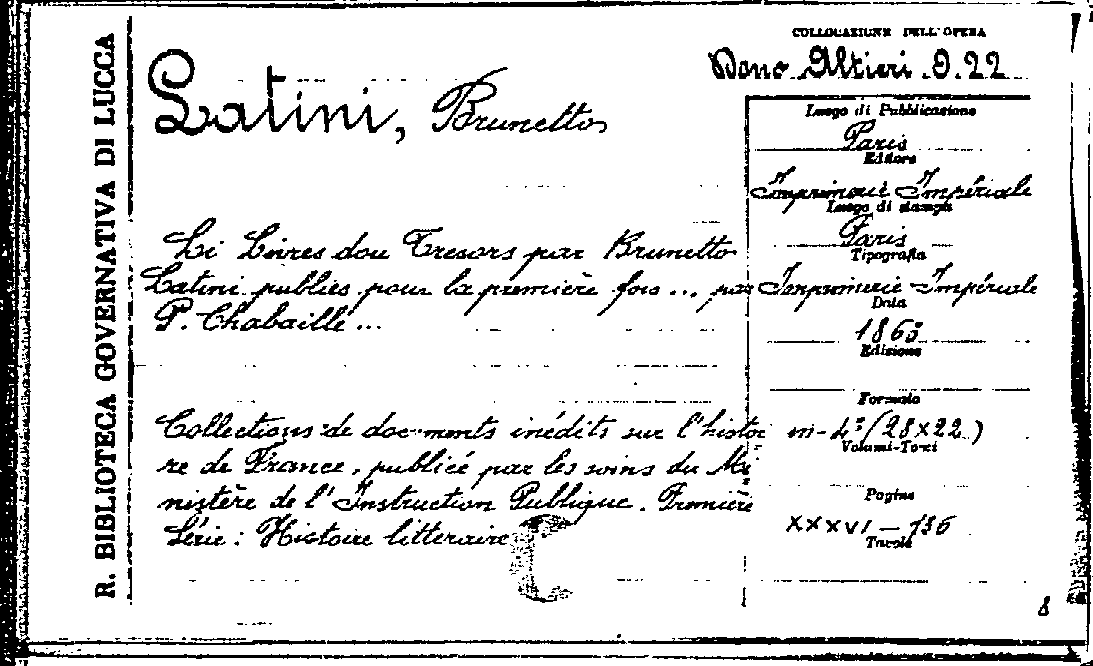 R. BIBLIOTECA GOVERNATIVA DI LUCCA
COLLOCAZIONE DELL'OPERA
Dono Altieri D.22
Latini, Brunetto
Luogo di Pubblicazione
Paris
Editore
Imprimerie Impériale
Luogo di stampa
Paris
Tipografia
Imprimerie Impériale
Data
1863
Edizione
Formato
in-4° (28x22)
Volumi-Tomi
Pagine
XXXVI - 736
Tavole
Li Livres dou Tresors par Brunetto
Latini publiés pour la première fois ... par
P. Chabaille ...
Collections de documents inédits sur l'histoi
re de France, publiée par les soins du Mi
nistère de l'Instruction Publique. Première
Série: Histoire litteraire
C
8